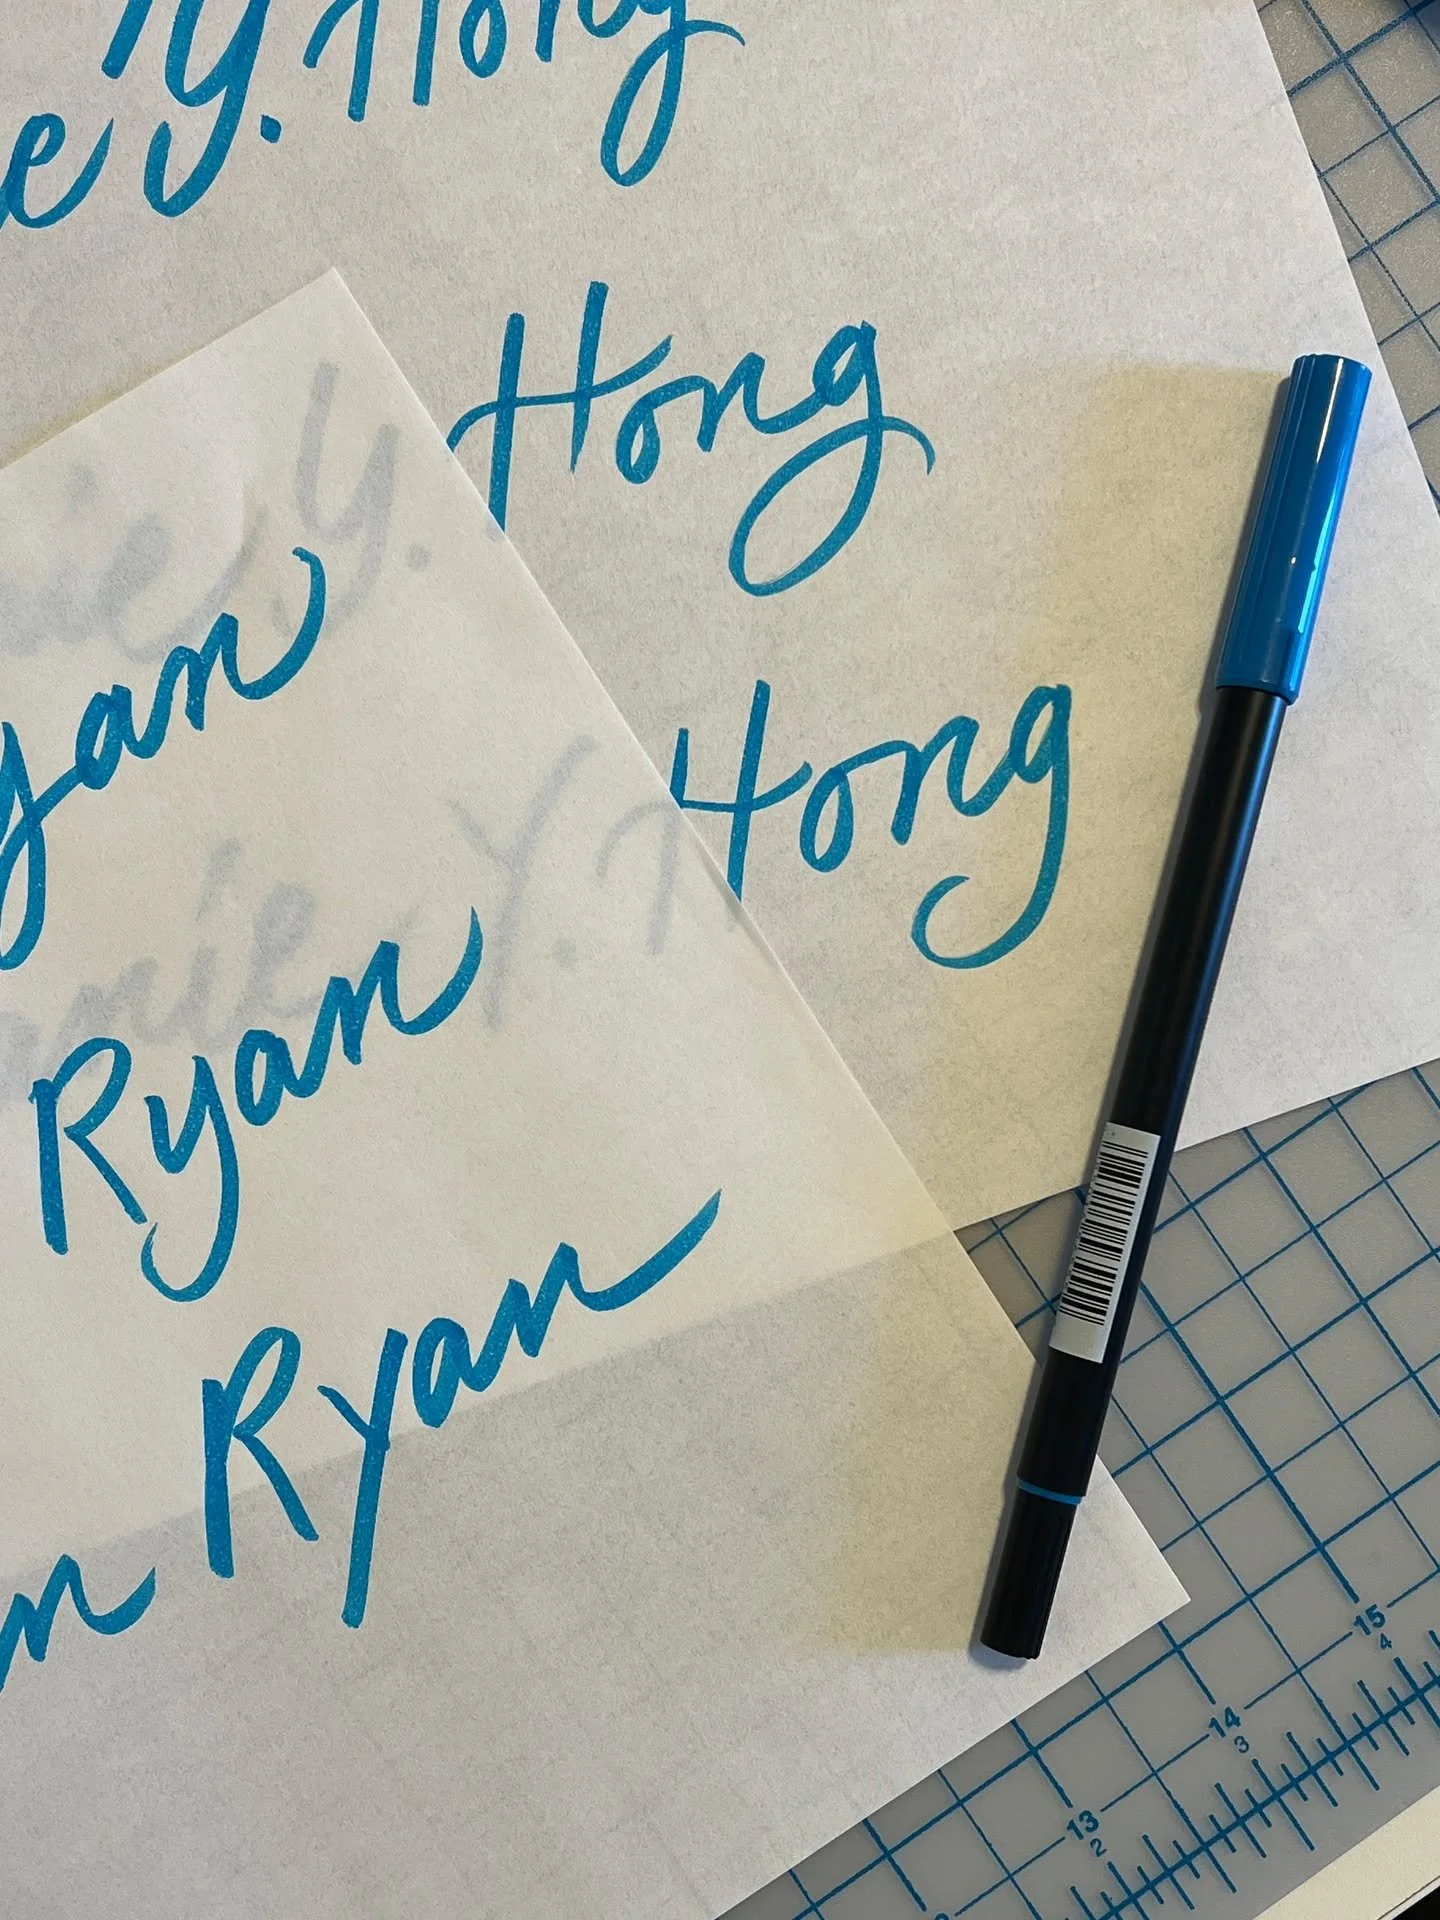 y. Hong
e y.
Hong
y.
yan
Hong
nie Y. H
Ryan
Ryan
n
15
4
14
3
13
2